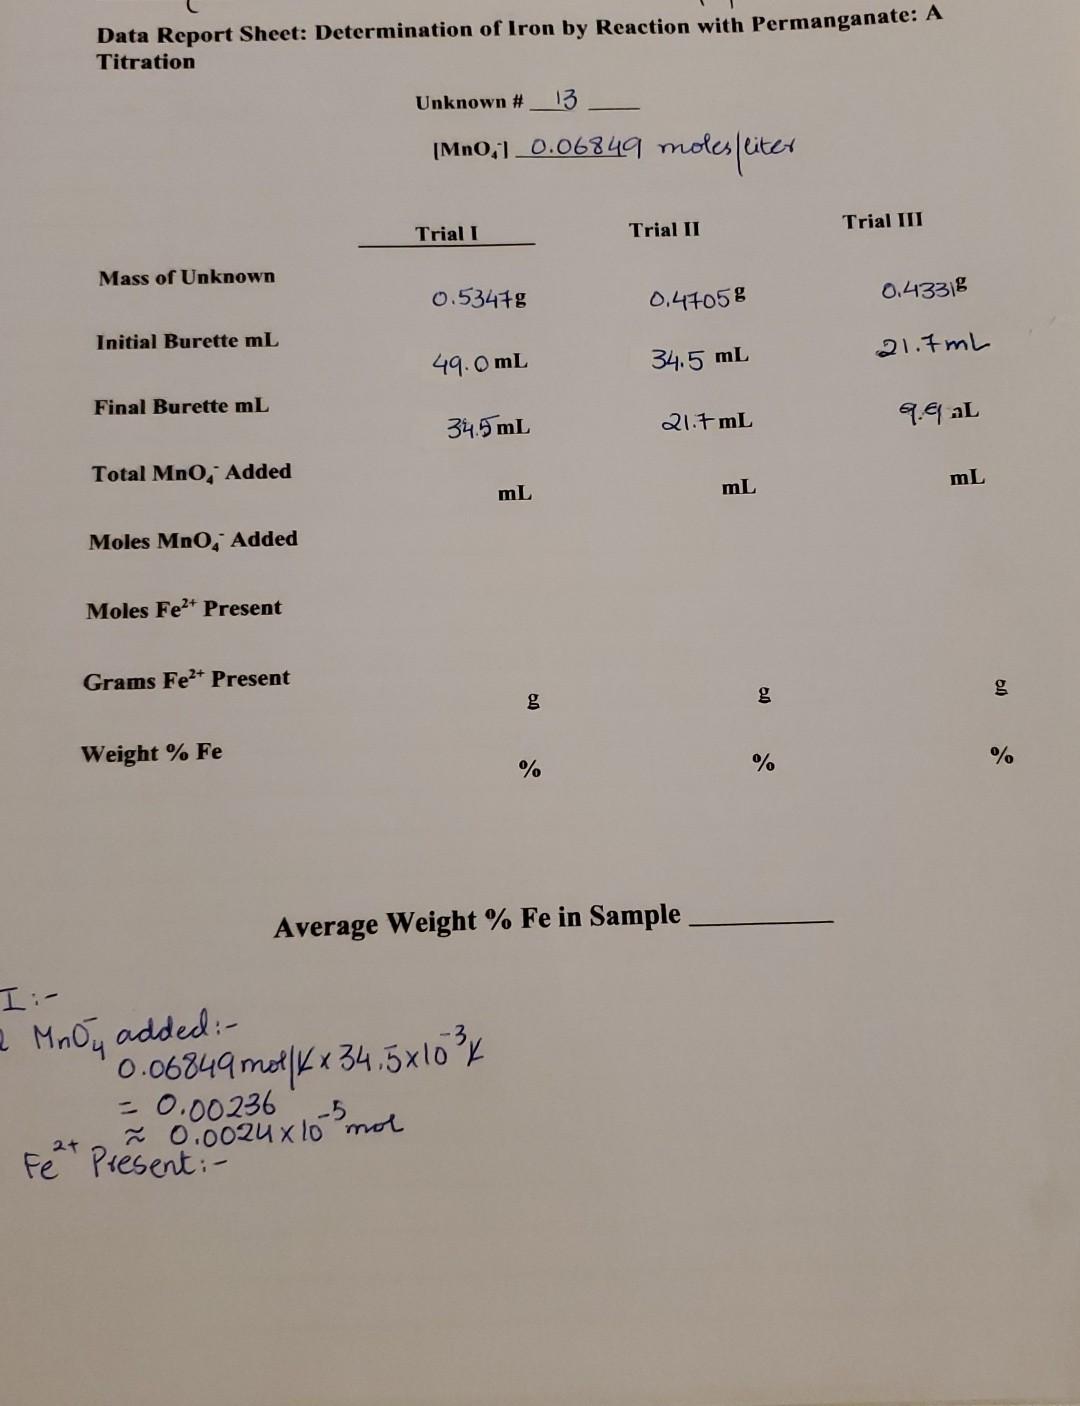 Data Report Sheet: Determination of Iron by Reaction with Permanganate: A
Titration
Unknown # 13
[MnO₄⁻] 0.06849 moles/liter
Trial I Trial II Trial III
Mass of Unknown
0.5347g 0.4705g 0.4331g
Initial Burette mL
49.0 mL 34.5 mL 21.7 mL
Final Burette mL
34.5 mL 21.7 mL 9.9 aL
Total MnO₄⁻ Added
mL mL mL
Moles MnO₄⁻ Added
Moles Fe²⁺ Present
Grams Fe²⁺ Present
g g g
Weight % Fe
% % %
Average Weight % Fe in Sample
I:-
MnO₄⁻ added:-
0.06849 mol/L x 34.5x10⁻³L
= 0.00236
≈ 0.0024 x 10⁻⁵ mol
Fe²⁺ Present:-